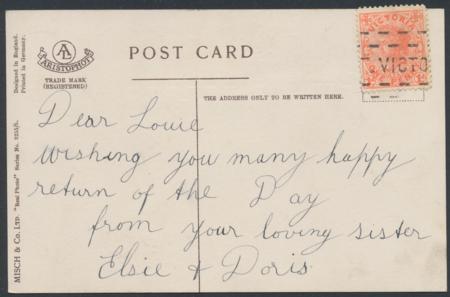 POST CARD
AL
ARISTOPHOT
TRADE MARK
(REGISTERED)
THE ADDRESS ONLY TO BE WRITTEN HERE.
VICTORIA
VICTO
Designed in England.
Printed in Germany.
MISCH & Co. LTD. "Real Photo" Series No.
Dear Louie
Wishing you many happy
return of the Day
from your loving sister
Elsie & Doris.